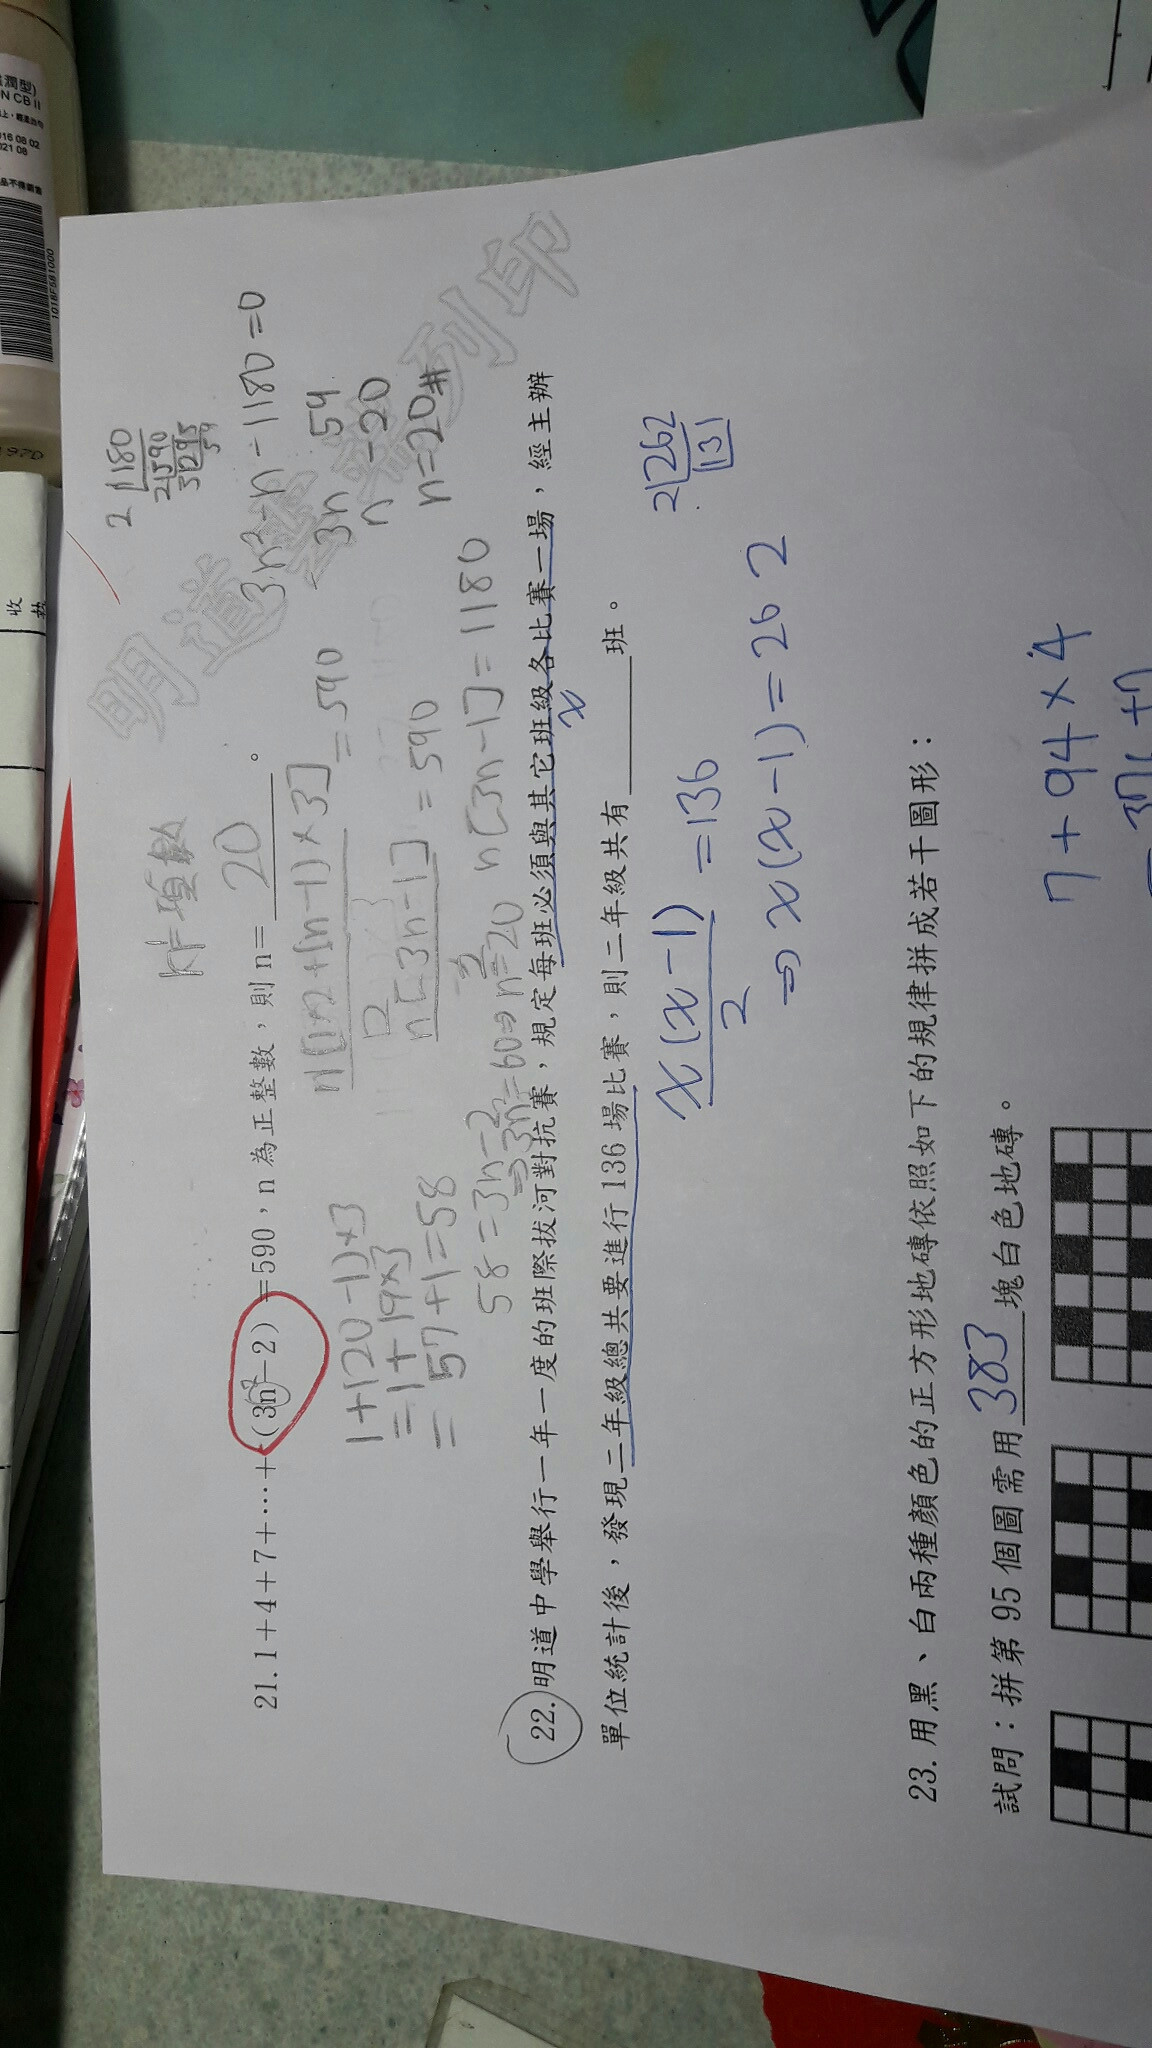 21. 1+4+7+…+(3n-2)=590，n 為正整數，則 n= 20 。
2 1180
2 590
5 295
59
n[1×2+(n-1)×3]
2
=590
n[3n-1]
=590
n[3n-1]=1180
3n²-n-1180=0
3n 59
n -20
n=20#
1+(20-1)×3
=1+19×3
=57+1=58
58=3n-2
⇒3n=60⇒n=20
22. 明道中學舉行一年一度的班際拔河對抗賽，規定每班必須與其它班級各比賽一場，經主辦
單位統計後，發現二年級總共要進行 136 場比賽，則二年級共有 班。
x
x(x-1)
2
=136
⇒x(x-1)=262
2 262
131
23. 用黑、白兩種顏色的正方形地磚依照如下的規律拼成若干圖形：
試問：拼第 95 個圖需用 383 塊白色地磚。
7+94×4
明道
列印
收
潤型)
N CB II
016 08 02
021 08
101BF581000